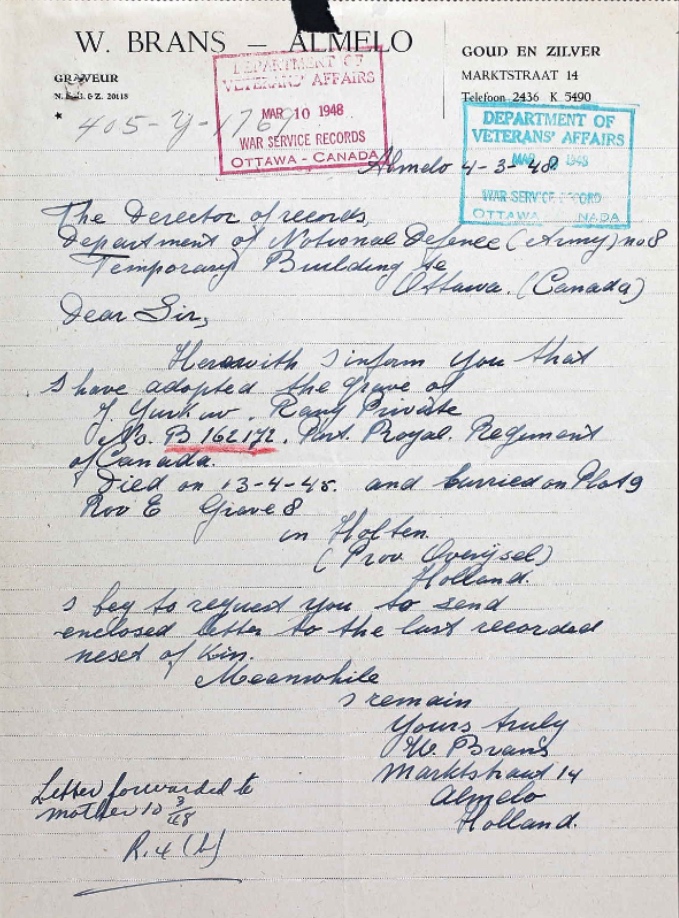 W. BRANS — ALMELO
GRAVEUR
N.E.J. & Z. 20118
*
GOUD EN ZILVER
MARKTSTRAAT 14
Telefoon 2436 K 5490
405-Y-1769
DEPARTMENT OF
VETERANS' AFFAIRS
MAR 10 1948
WAR SERVICE RECORDS
OTTAWA - CANADA
DEPARTMENT OF
VETERANS' AFFAIRS
MAR 1948
WAR SERVICE RECORD
OTTAWA CANADA
Almelo 4-3-48.
The Derector of records,
Department of Notional Defence (Army) no 8
Temporary Building te
Ottawa. (Canada)
Dear Sir,
Herewith I inform you that
I have adopted the grave of
J. Yurkiw. Rang Private
No. B 162172. Part. Royal. Regiment
of Canada.
Died on 13-4-45. and burried on Plot 9
Rov E Grave 8
in Holten
(Prov Overijsel)
Holland.
I beg to request you to send
enclosed letter to the last recorded
nesct of Kin.
Meanwhile
I remain
Yours truly
W. Brans
Marktstraat 14
Almelo
Holland.
Letter forwarded to
mother 10 3/48
R.4 (L)